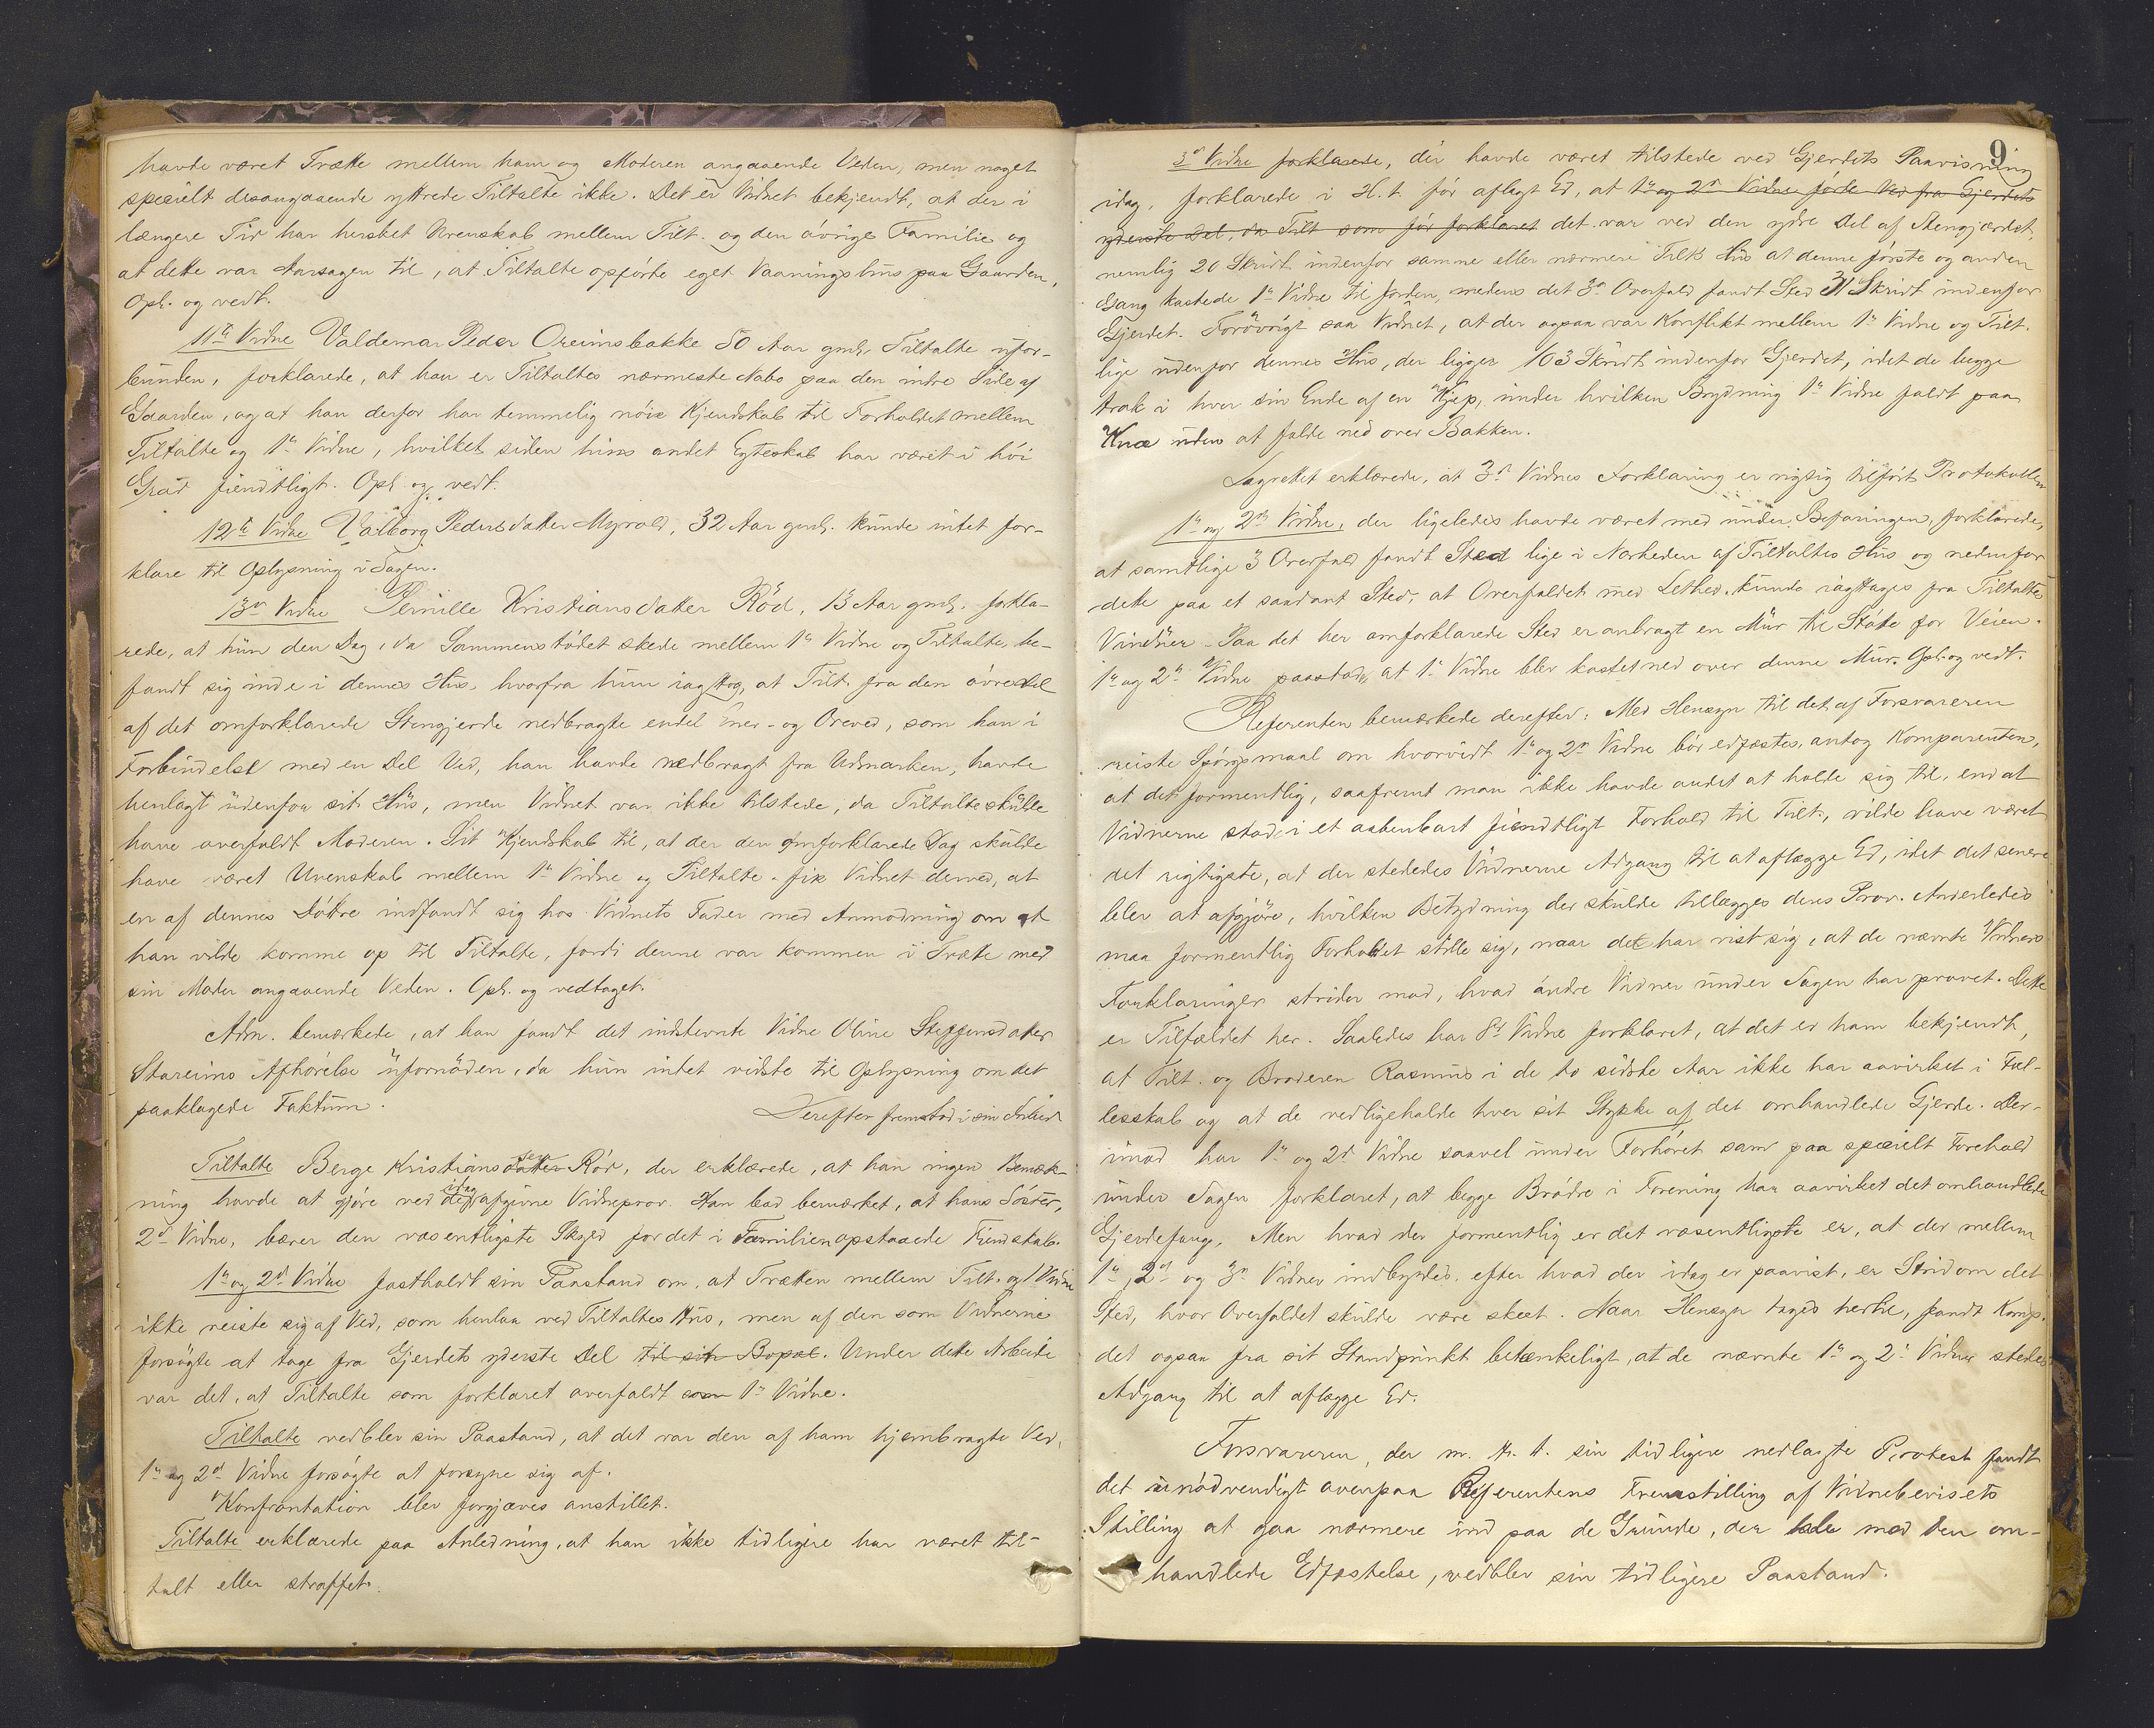 havde været Trætte mellem ham og Moderen angaaende Veden, men noget
specielt desangaaende yttrede Tiltalte ikke. Det er Vidnet bekjendt, at der i
længere Tid har hersket Uvenskab mellem Tilt. og den övrige Familie og
at dette var Aarsagen til, at Tiltalte opførte eget Vaaningshus paa Gaarden,
Opl. og vedt.
11te Vidne Valdemar Peder Oreimsbakke 50 Aar gml. Tiltalte ufor-
bunden, forklarede, at han er Tiltaltes nærmeste Nabo paa den indre Side af
Gaarden, og at han derfor har temmelig nöie Kjendskab til Forholdet mellem
Tiltalte og 1ste Vidne, hvilket siden hins andet Egteskab har været i höi
Grad fiendtligt. Opl. og vedt.
12te Vidne Valborg Pedersdatter Myrold, 32 Aar gml. kunde intet for-
klare til Oplysning i Sagen.
13de Vidne Pernille Kristiansdatter Röd, 13 Aar gml. forkla-
rede, at hun den Dag, da Sammenstödet skede mellem 1ste Vidne og Tiltalte, be-
fandt sig inde i dennes Hus, hvorfra hun iagttog, at Tilt. fra den övre Del
af det omforklarede Stengjerde nedbragte endel Ener- og Oreved, som han i
Forbindelse med en Del Ved, han havde nedbragt fra Udmarken, havde
henlagt udenfor sit Hus, men Vidnet var ikke tilstede, da Tiltalte skulle
have overfaldt Moderen. Sit Kjendskab til, at der den omforklarede Dag skulde
have været Uvenskab mellem 1ste Vidne og Tiltalte fik Vidnet derved, at
en af dennes Döttre indfandt sig hos Vidnets Fader med Anmodning om at
han vilde komme op til Tiltalte, fordi denne var kommen i Trætte med
sin Moder angaaende Veden. Opl. og vedtaget.
Adm. bemærkede, at han fandt det indstevnte Vidne Oline Steffensdatter
Stareims Afhörelse ufornöden, da hun intet vidste til Oplysning om det
paaklagede Faktum.
Derefter fremstod i sin Orden
Tiltalte Berge Kristianssen Röd, der erklærede, at han ingen Bemærk-
ning havde at gjöre ved de idag afgivne Vidneprov. Han bad bemærket, at hans Söster,
2det Vidne, bærer den væsentligste Skyld for det i Familien opstaaede Fiendskab.
1ste og 2det Vidne fastholdt sin Paastand om, at Trætten mellem Tilt. og 1 Vidne
ikke reiste sig af Ved, som henlaa ved Tiltaltes Hus, men af den som Vidnerne
forsögte at tage fra Gjerdets yderste Del til sit Bopæl. Under dette Arbeide
var det, at Tiltalte som forklaret overfaldt som 1ste Vidne.
Tiltalte vedblev sin Paastand, at det var den af ham hjembragte Ved,
1ste og 2det Vidne forsögte at forsyne sig af.
Konfrontation blev forgjæves anstillet.
Tiltalte erklærede paa Anledning, at han ikke tidligere har været til-
talt eller straffet.
9
3de Vidne forklarede, der havde været tilstede ved Gjerdets Paavisning
idag, forklarede i H. t. för aflagt Ed, at 1ste og 2det Vidne förte Ved fra Gjerdets
yderste Del, da Tilt som för forklaret det var ved den ydre Del af Stengjærdet,
nemlig 20 Skridt indenfor samme eller nærmere Tilts Hus at denne förste og anden
Gang kastede 1ste Vidne til Jorden, medens det 3de Overfald fandt Sted 31 Skridt indenfor
Gjerdet. Forövrigt saa Vidnet, at der ogsaa var Konflikt mellem 1ste Vidne og Tilt.
lige udenfor dennes Hus, der ligger 103 Skridt indenfor Gjerdet, idet de begge
trak i hver sin Ende af en Kjep, under hvilken Brydning 1ste Vidne faldt paa
Knæ uden at falde ned over Bakken.
Lagrettet erklærede, at 3de Vidnes Forklaring er rigtig tilfört Protokollen
1ste og 2det Vidne, der ligeledes havde været med under Befaringen, forklarede,
at samtlige 3 Overfald fandt Sted lige i Nærheden af Tiltaltes Hus og nedenfor
dette paa et saadant Sted, at Overfaldet med Lethed kunde iagttages fra Tiltaltes
Vinduer. Paa det her omforklarede Sted er anbragt en Mur til Stötte for Veien.
1ste og 2det Vidne paastod, at 1ste Vidne blev kastet ned over denne Mur. Opl. og vedt.
Referenten bemærkede derefter: Med Hensyn til det af Forsvareren
reiste Spörgsmaal om hvorvidt 1ste og 2det Vidne bör edfæstes, antog Komparenten,
at det formentlig, saafremt man ikke havde andet at holde sig til, end at
Vidnerne stod i et aabenbart fiendtligt Forhold til Tilt., vilde have været
det rigtigste, at der stededes Vidnerne Adgang til at aflægge Ed, idet det senere
blev at afgjöre, hvilken Betydning der skulde tillægges deres Prov. Anderledes
maa formentlig Forholdet stille sig, naar det har vist sig, at de nævnte Vidners
Forklaringer strider mod, hvad andre Vidner under Sagen har provet. Dette
er Tilfældet her. Saaledes har 8de Vidne forklaret, at det er ham bekjendt,
at Tilt. og Broderen Rasmus i de to sidste Aar ikke har aavirket i Fæl-
lesskab og at de vedligeholde hver sit Stykke af det omhandlede Gjerde. Der-
imod har 1ste og 2det Vidne saavel under Forhöret som paa specielt Forehold
under Sagen forklaret, at begge Brödre i Forening har aavirket det omhandlede
Gjerdefang. Men hvad der formentlig er det væsentligste er, at der mellem
1ste, 2det og 3de Vidner indbyrdes, efter hvad der idag er paavist, er Strid om det
Sted, hvor Overfaldet skulde være skeet. Naar Hensyn tages hertil, fandt Komp.
det ogsaa fra sit Standpunkt betænkeligt, at de nævnte 1ste og 2det Vidner stedes
Adgang til at aflægge Ed.
Forsvareren, der m. H. t. sin tidligere nedlagte Protest fandt
det unödvendigt ovenpaa Referentens Fremstilling af Vidnebevisets
Stilling at gaa nærmere ind paa de Grunde, der tale mod den om-
handlede Edfæstelse, vedblev sin tidligere Paastand.